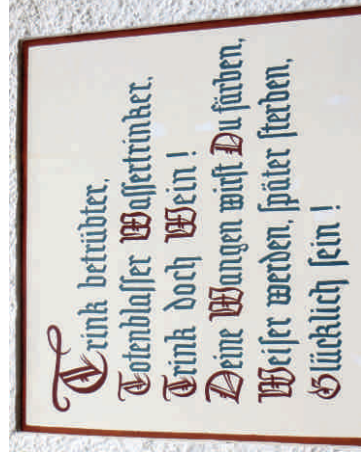 Trink betrübter,
Totenblasser Wassertrinker,
Trink doch Wein!
Deine Wangen wirst Du färben,
Weiser werden, später sterben,
Glücklich sein!